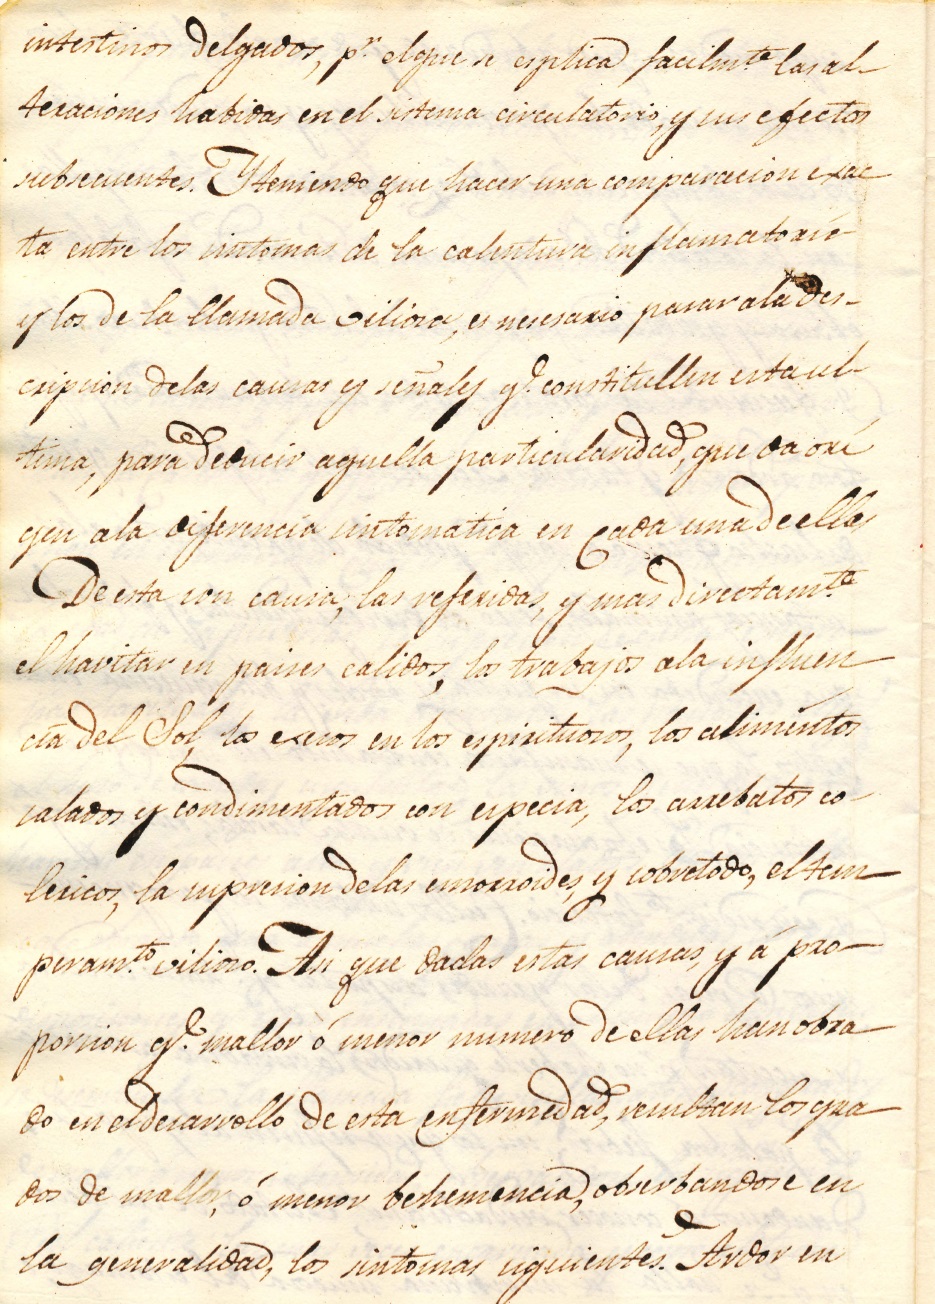 intestinos delgados, pr. el que se esplica facilmte. las al-
teraciones habidas en el sistema circulatorio, y sus efectos
subsecuentes. Y teniendo que hacer una comparacion exac
ta entre los sintomas de la calentura inflamatoria
y los de la llamada viliosa, es necesario pasar a la des-
cripsion de las causas y señales qe. constitullen esta ul-
tima, para deducir aquella particularidad, que da orí
gen a la diferencia sintomatica en cada una de ellas
De esta son causa, las referidas, y mas directamte.
el havitar en paises calidos, los trabajos a la influen
cia del Sol, los exesos en los espirituosos, los alimentos
salados y condimentados con especia, los arrebatos co-
lericos, la supresion de las emorroides, y sobretodo, el tem
peramto. vilioso. Asi que dadas estas causas, y á pro-
porsion qe. mallor ó menor numero de ellas han obra
do en el desarrollo de esta enfermedad, resultan los gra
dos de mallor, ó menor beshemencia, obserbandose en
la generalidad, los sintomas siguientes. Ardor en